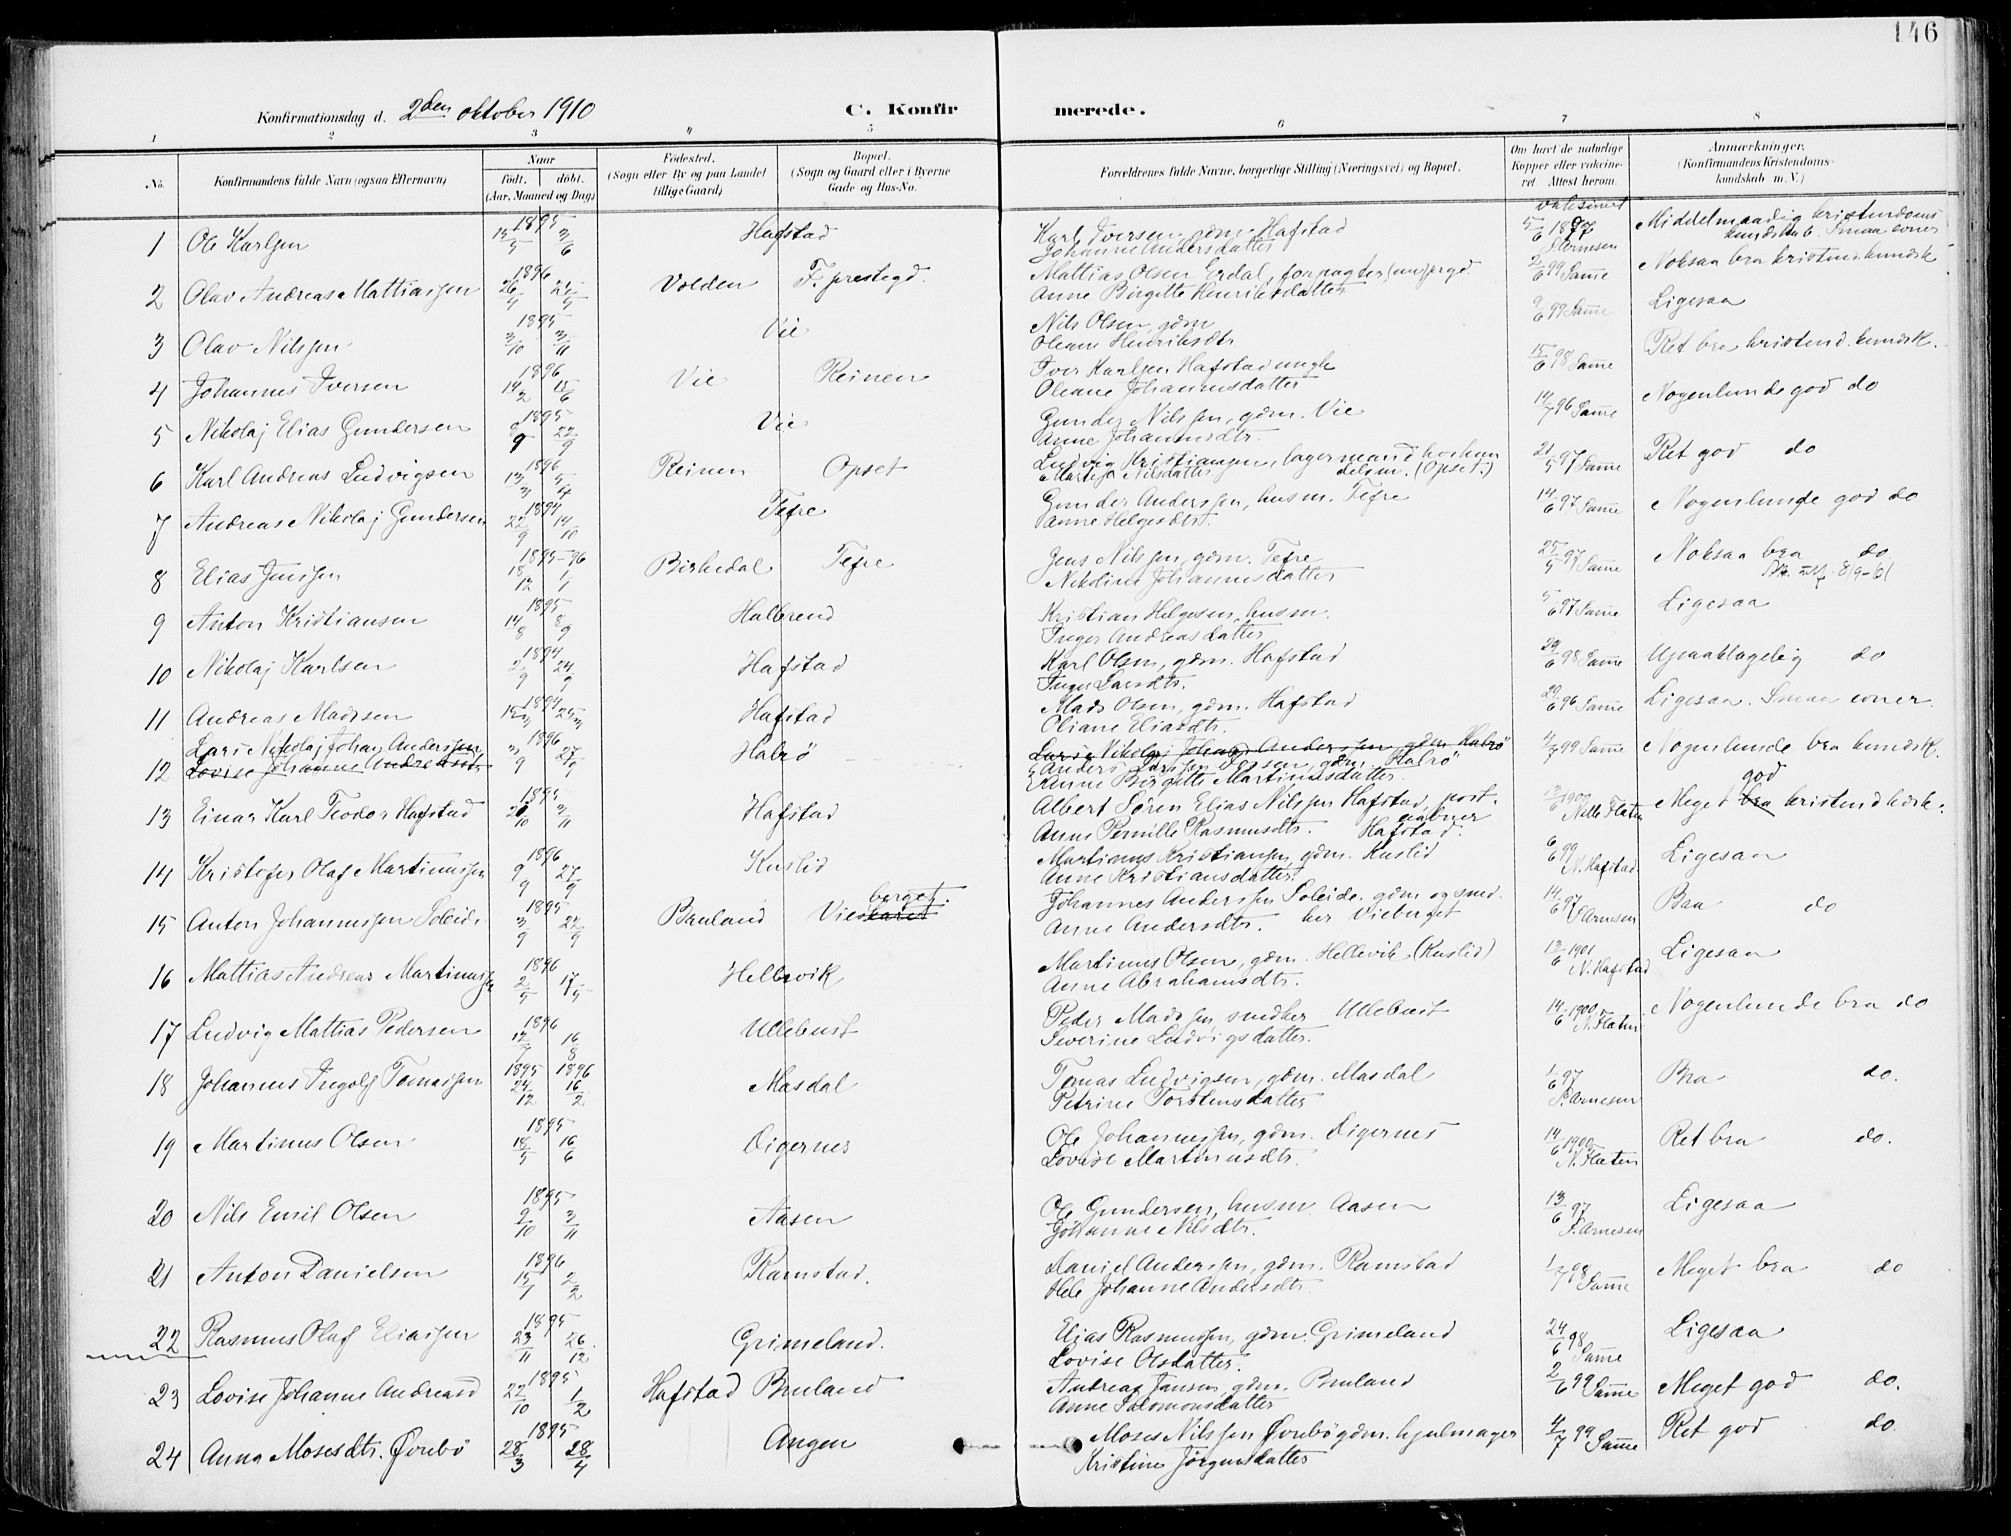 146
Konfirmationsdag d. 2den oktober 1910
C. Konfirmerede.
1 2 3 4 5 6 7 8
No.
Konfirmandens fulde Navn (ogsaa Efternavn)
Naar
født, døbt.
(Aar, Maaned og Dag)
Fødested.
(Sogn eller By og paa Landet
tillige Gaard)
Bopæl.
(Sogn og Gaard eller i Byerne
Gade og Hus-No.
Forældrenes fulde Navne, borgerlige Stilling (Næringsvei) og Bopæl.
Om havt de naturlige
Kopper eller vaccine-
ret. Attest herom.
Anmærkninger.
(Konfirmandens Kristendoms-
kundskab m. V.)
1 Ole Karlsen 1895 15/5 3/6 Hafstad
Karl Iversen gdm Hafstad
Johanne Andersdatter
vaksinert 5/6 1897 Middelmaadig kristendoms
kundskab. Smaa evner
2 Olav Andreas Mattiassen 1896 26/4 25/5 Volden F. prestegd.
Mattias Olsen Erdal, forpagter
Anne Birgitte Henriksdatter
2/6 99 Samme Noksaa bra kristendkundsk
3 Olav Nilssen 1895 3/10 3/11 Vie
Nils Olsen, gdm
Oleane Henriksdtr
9/6 99 Samme Ligesaa
4 Johannes Iversen 1896 14/2 15/6 Vie Reinen
Iver Karlsen Hafstad ungk
Oleane Johannesdatter
15/6 98 Samme Ret bra kristend. kundsk.
5 Nikolaj Elias Gundersen 1895 9 22/9 Vie
Gunder Nilssen, gdm. Vie
Anne Johannesdtr.
14/7 96 Samme Nogenlunde god do
6 Karl Andreas Ludvigsen 1896 13/3 5/4 Reinen Opset
Ludvig Kristiansen, lagermand hos han
delsm. (Opset.)
Martha Nilsdatter
21/5 97 Samme Ret god do
7 Andreas Nikolaj Gundersen 1894 22/9 14/10 Tefre
Gunder Anderssen, husm. Tefre
Anne Helgesdtr.
14/6 97 Samme Nogenlunde god do
8 Elias Jenssen 1895-96 18/12 1/1 Birkedal Tefre
Jens Nilssen, gdm. Tefre
Nikoline Johannesdatter
25/5 97 Samme Noksaa bra do
9 Anton Kristiansen 1895 14/8 8/9 Halbrend
Kristian Helgesen, husm.
Inger Andreasdatter
5/6 97 Samme Ligesaa
10 Nikolaj Karlsen 1894 2/9 24/9 Hafstad
Karl Olsen, gdm. Hafstad
Inger Larsdtr.
29/6 98 Samme Upaaklagelig do
11 Andreas Madssen 1894 15/3 25/3 Hafstad
Mads Olsen, gdm. Hafstad
Oliane Eliasdtr.
20/6 96 Samme Ligesaa. Smaa evner
12 Lars Nikolaj Johan Anderssen
Lovise Johanne Andreasdtr 1896 3/9 27/9 Halrö
Lars Nikolaj Johan Anderssen gdm Halrö
Anders Larssen, gdm. Halrö
Anne Birgitte Martinusdatter
4/7 99 Samme Nogenlunde bra kundsk.
13 Einar Karl Teodor Hafstad 1895 20/10 3/11 Hafstad
Albert Sören Elias Nilssen Hafstad, post-
aabner
Anne Pernille Rasmusdtr. Hafstad.
1900 Nelle Flaten Meget bra god kristendkdsk.
14 Kristofer Olaf Martinussen 1896 9/9 27/9 Kuslid
Martinus Kristiansen, gdm. Kuslid
Anne Kristiansdatter
6/6 99 N. Hafstad. Ligesaa
15 Anton Johannessen Soleide 1895 3/9 22/9 Bruland Vieskaret berget.
Johannes Anderssen Soleide. gdm og smed.
Anne Andersdtr. her Vieberget
14/6 97 Arnesen Bra do
16 Mattias Andreas Martinussen 1896 2/5 17/5 Hellevik
Martinus Olsen, gdm. Hellevik (Kuslid)
Anne Abrahamsdtr.
13/6 1901 N. Hafstad Ligesaa
17 Ludvig Mattias Pedersen 1896 12/7 16/8 Ullebust
Peder Madssen, snedker Ullebust
Severine Ludvigsdatter.
14/6 1900 N. Flaten Nogenlunde bra do
18 Johannes Ingolf Tomassen 1895 24/12 1896 16/2 Masdal
Tomas Ludvigsen, gdm. Masdal
Petrine Torstensdatter
1/6 97 P. Arnesen Bra do.
19 Martinus Olsen 1895 18/5 16/6 Digernes
Ole Johannessen, gdm. Digernes
Lovise Martinusdtr.
14/6 1900 N. Flaten Ret bra do.
20 Nils Emil Olsen 1895 9/10 3/11 Aasen
Ole Gundersen, husm. Aasen
Johanne Nilsdtr.
13/6 97 P. Arnesen Ligesaa
21 Anton Danielsen 1896 15/1 2/2 Ramstad.
Daniel Anderssen, gdm. Ramstad
Johanne Andersdtr.
1/7 98 Samme Meget bra do
22 Rasmus Olaf Eliassen 1895 23/11 26/12 Grimeland.
Elias Rasmussen, gdm. Grimeland
Lovise Olsdatter.
24/6 98 Samme Ligesaa
23 Lovise Johanne Andreasd 1895 27/10 1/2 Hafstad Bruland
Andreas Jansen, gdm. Bruland
Anne Salomonsdatter
2/6 99 Samme Meget god do.
24 Anna Mosesdtr. Øvrebö 1895 28/3 28/4 Angen
Moses Nilssen Øvrebö gdm. hjulmager
Kristine Jörgensdatter
4/7 99 Samme Ret god do.